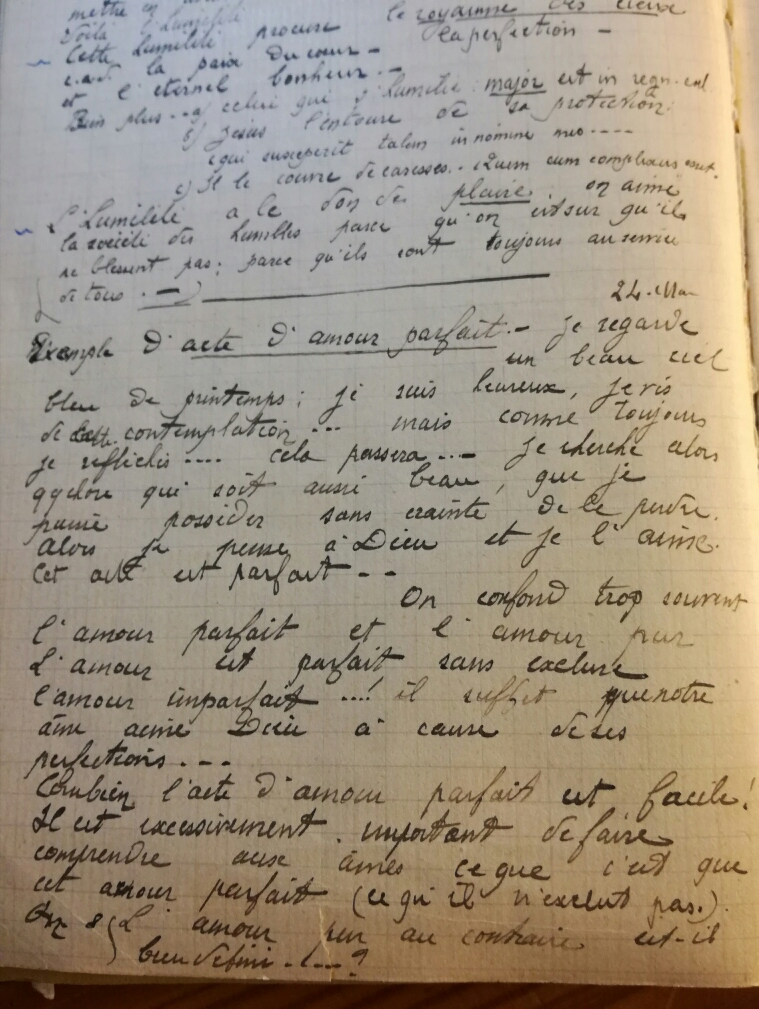 mettre en
le royaume des cieux
Voilà l'humilité
la perfection -
Cette humilité procure
c.a.d. la paix du cœur -
et l'éternel bonheur. -
Bien plus -- a) celui qui s'humilie major est in regn. cæl
b) Jésus l'entoure de sa protection.
qui susceperit talem in nomine meo ----
c) Il le couvre de caresses.. Quem cum complexus esset.
L'humilité a le don de plaire. on aime
la société des humbles parce qu'on est sur qu'ils
ne blessent pas; parce qu'ils sont toujours au service
de tous. -
24. Mar
Exemple d'acte d'amour parfait. - Je regarde
un beau ciel
bleu de printemps; je suis heureux, je vis
de cette contemplation... mais comme toujours
je réfléchis .... cela passera ... Je cherche alors
qqchose qui soit aussi beau, que je
puisse posséder sans crainte de le perdre.
alors je pense à Dieu et je l'aime.
Cet acte est parfait --
On confond trop souvent
l'amour parfait et l'amour pur
L'amour est parfait sans exclure
l'amour imparfait ...! il suffit que notre
âme aime Dieu à cause de ses
perfections...
Combien l'acte d'amour parfait est facile!
Il est excessivement important de faire
comprendre aux âmes ce que c'est que
cet amour parfait (ce qu'il n'exclut pas.)
L'amour pur au contraire est-il
bien défini -.--?